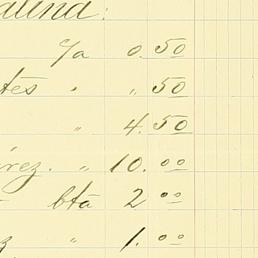 c/a 0.50
tes " " 50
" 4.50
rez. " 10.00
bta 2 00
z " 1.00